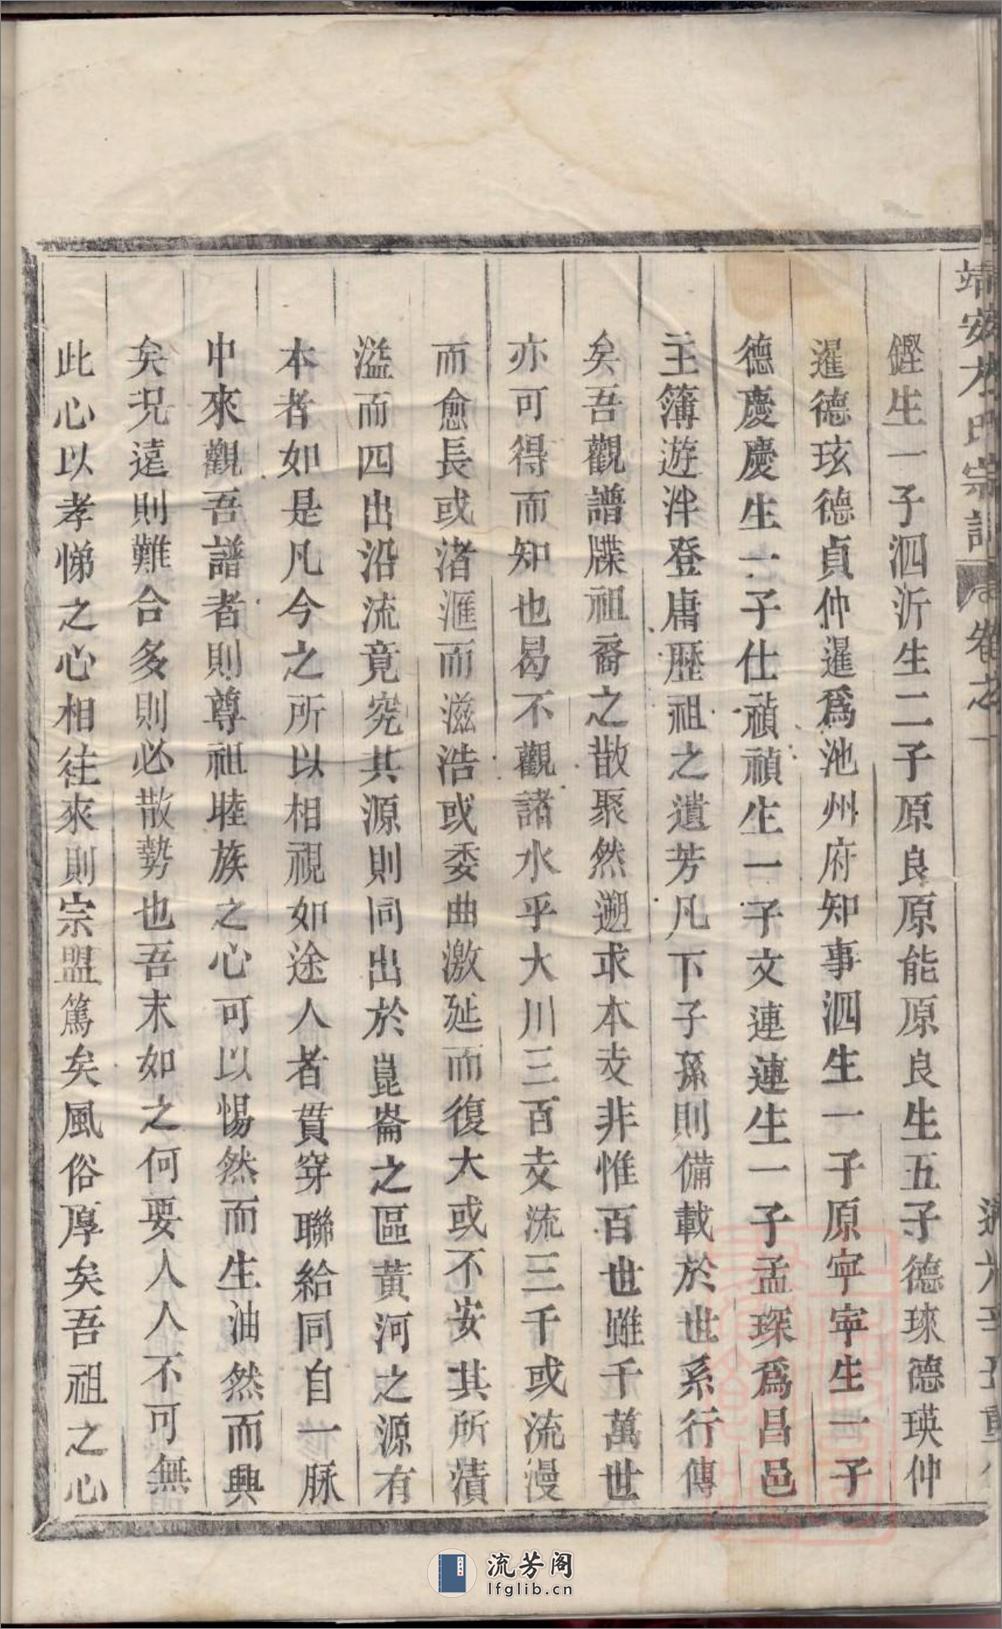 靖安 氏宗譜 卷之一
鏗生一子泗沂生二子原良原能原良生五子德琜德瑛仲
暹德玹德貞仲暹爲池州府知事泗生一子原寜寜生一子
德慶慶生一子仕禎禎生一子文連連生一子孟琛爲昌邑
主簿遊泮登庸歷祖之遺芳凡下子孫則備載於世系行傳
矣吾觀譜牒祖裔之散聚然遡求本支非惟百世雖千萬世
亦可得而知也曷不觀諸水乎大川三百支流三千或流漫
而愈長或渚滙而滋浩或委曲激延而復大或不安其所漬
溢而四出沿流竟究其源則同出於崑崙之區黃河之源有
本者如是凡今之所以相視如途人者貫穿聯給同自一脉
中來觀吾譜者則尊祖睦族之心可以惕然而生油然而興
矣况遠則難合多則必散勢也吾末如之何要人人不可無
此心以孝悌之心相往來則宗盟篤矣風俗厚矣吾祖之心
流芳阁
lfglib.cn